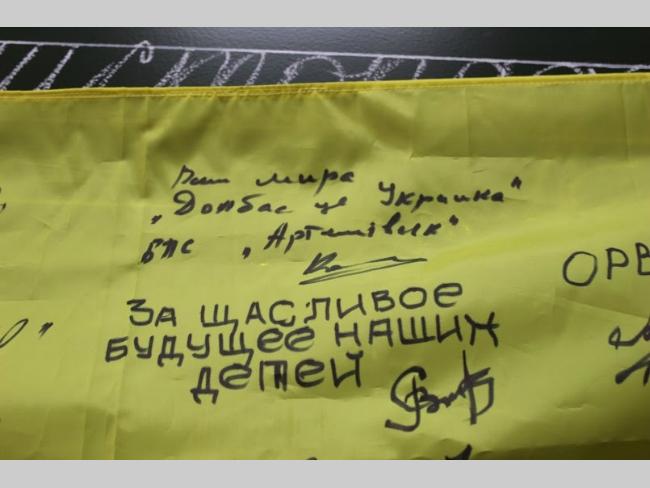 мира
„Донбас це Україна"
БПС „Артемівськ"
ЗА ЩАСЛИВОЕ
БУДУЩЕЕ НАШИХ
ДЕТЕЙ
ОРВ